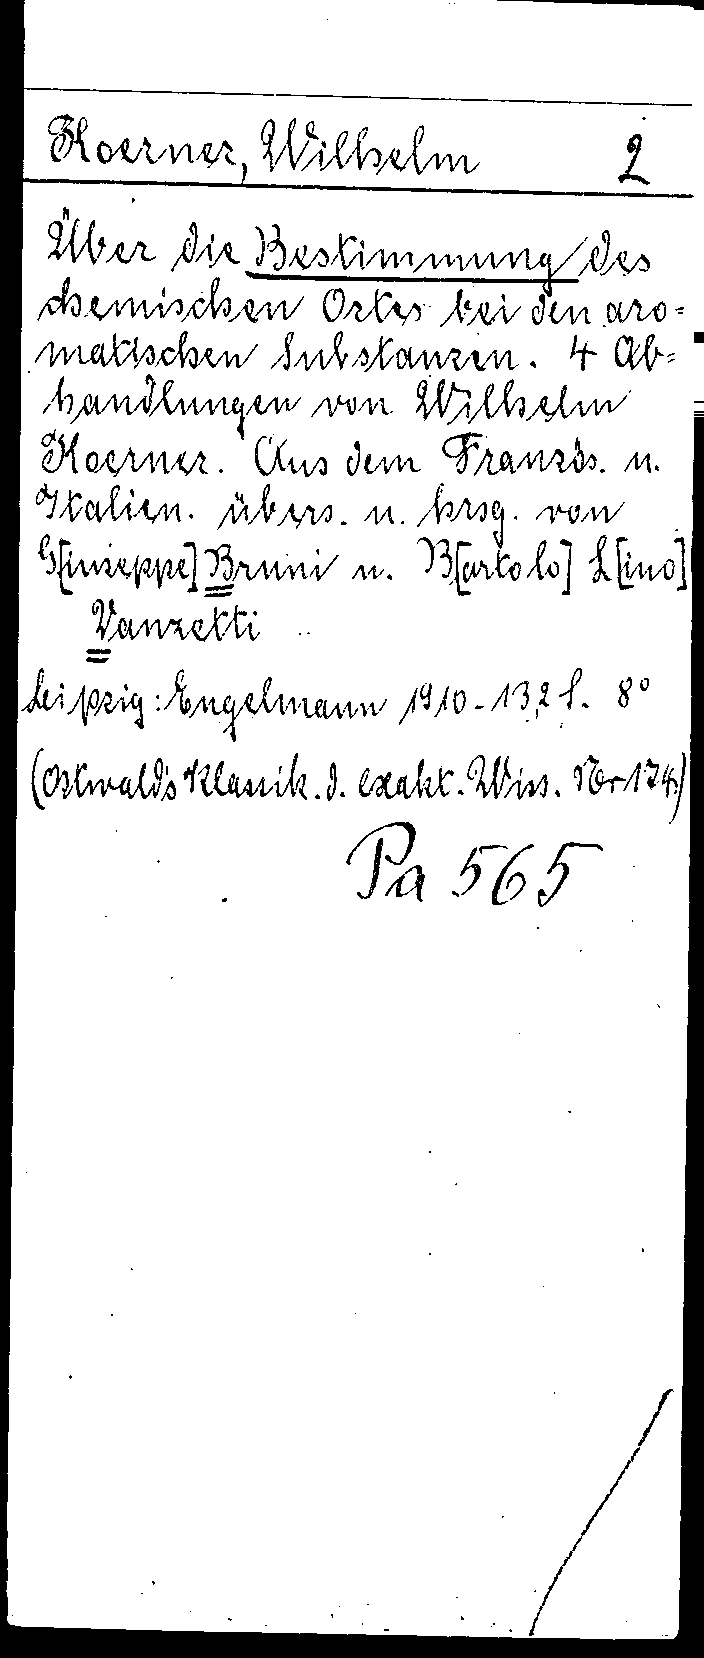 Koerner, Wilhelm 2
Über die Bestimmung des
chemischen Ortes bei den aro=
matischen Substanzen. 4 Ab=
handlungen von Wilhelm
Koerner. Aus dem Französ. u.
Italien. übers. u. hrsg. von
G[iuseppe] Bruni u. B[ortolo] L[ino]
Vanzetti
Leipzig: Engelmann 1910. 132 S. 8°
(Ostwald's Klassik. d. exakt. Wiss. Nr 174)
Pa 565